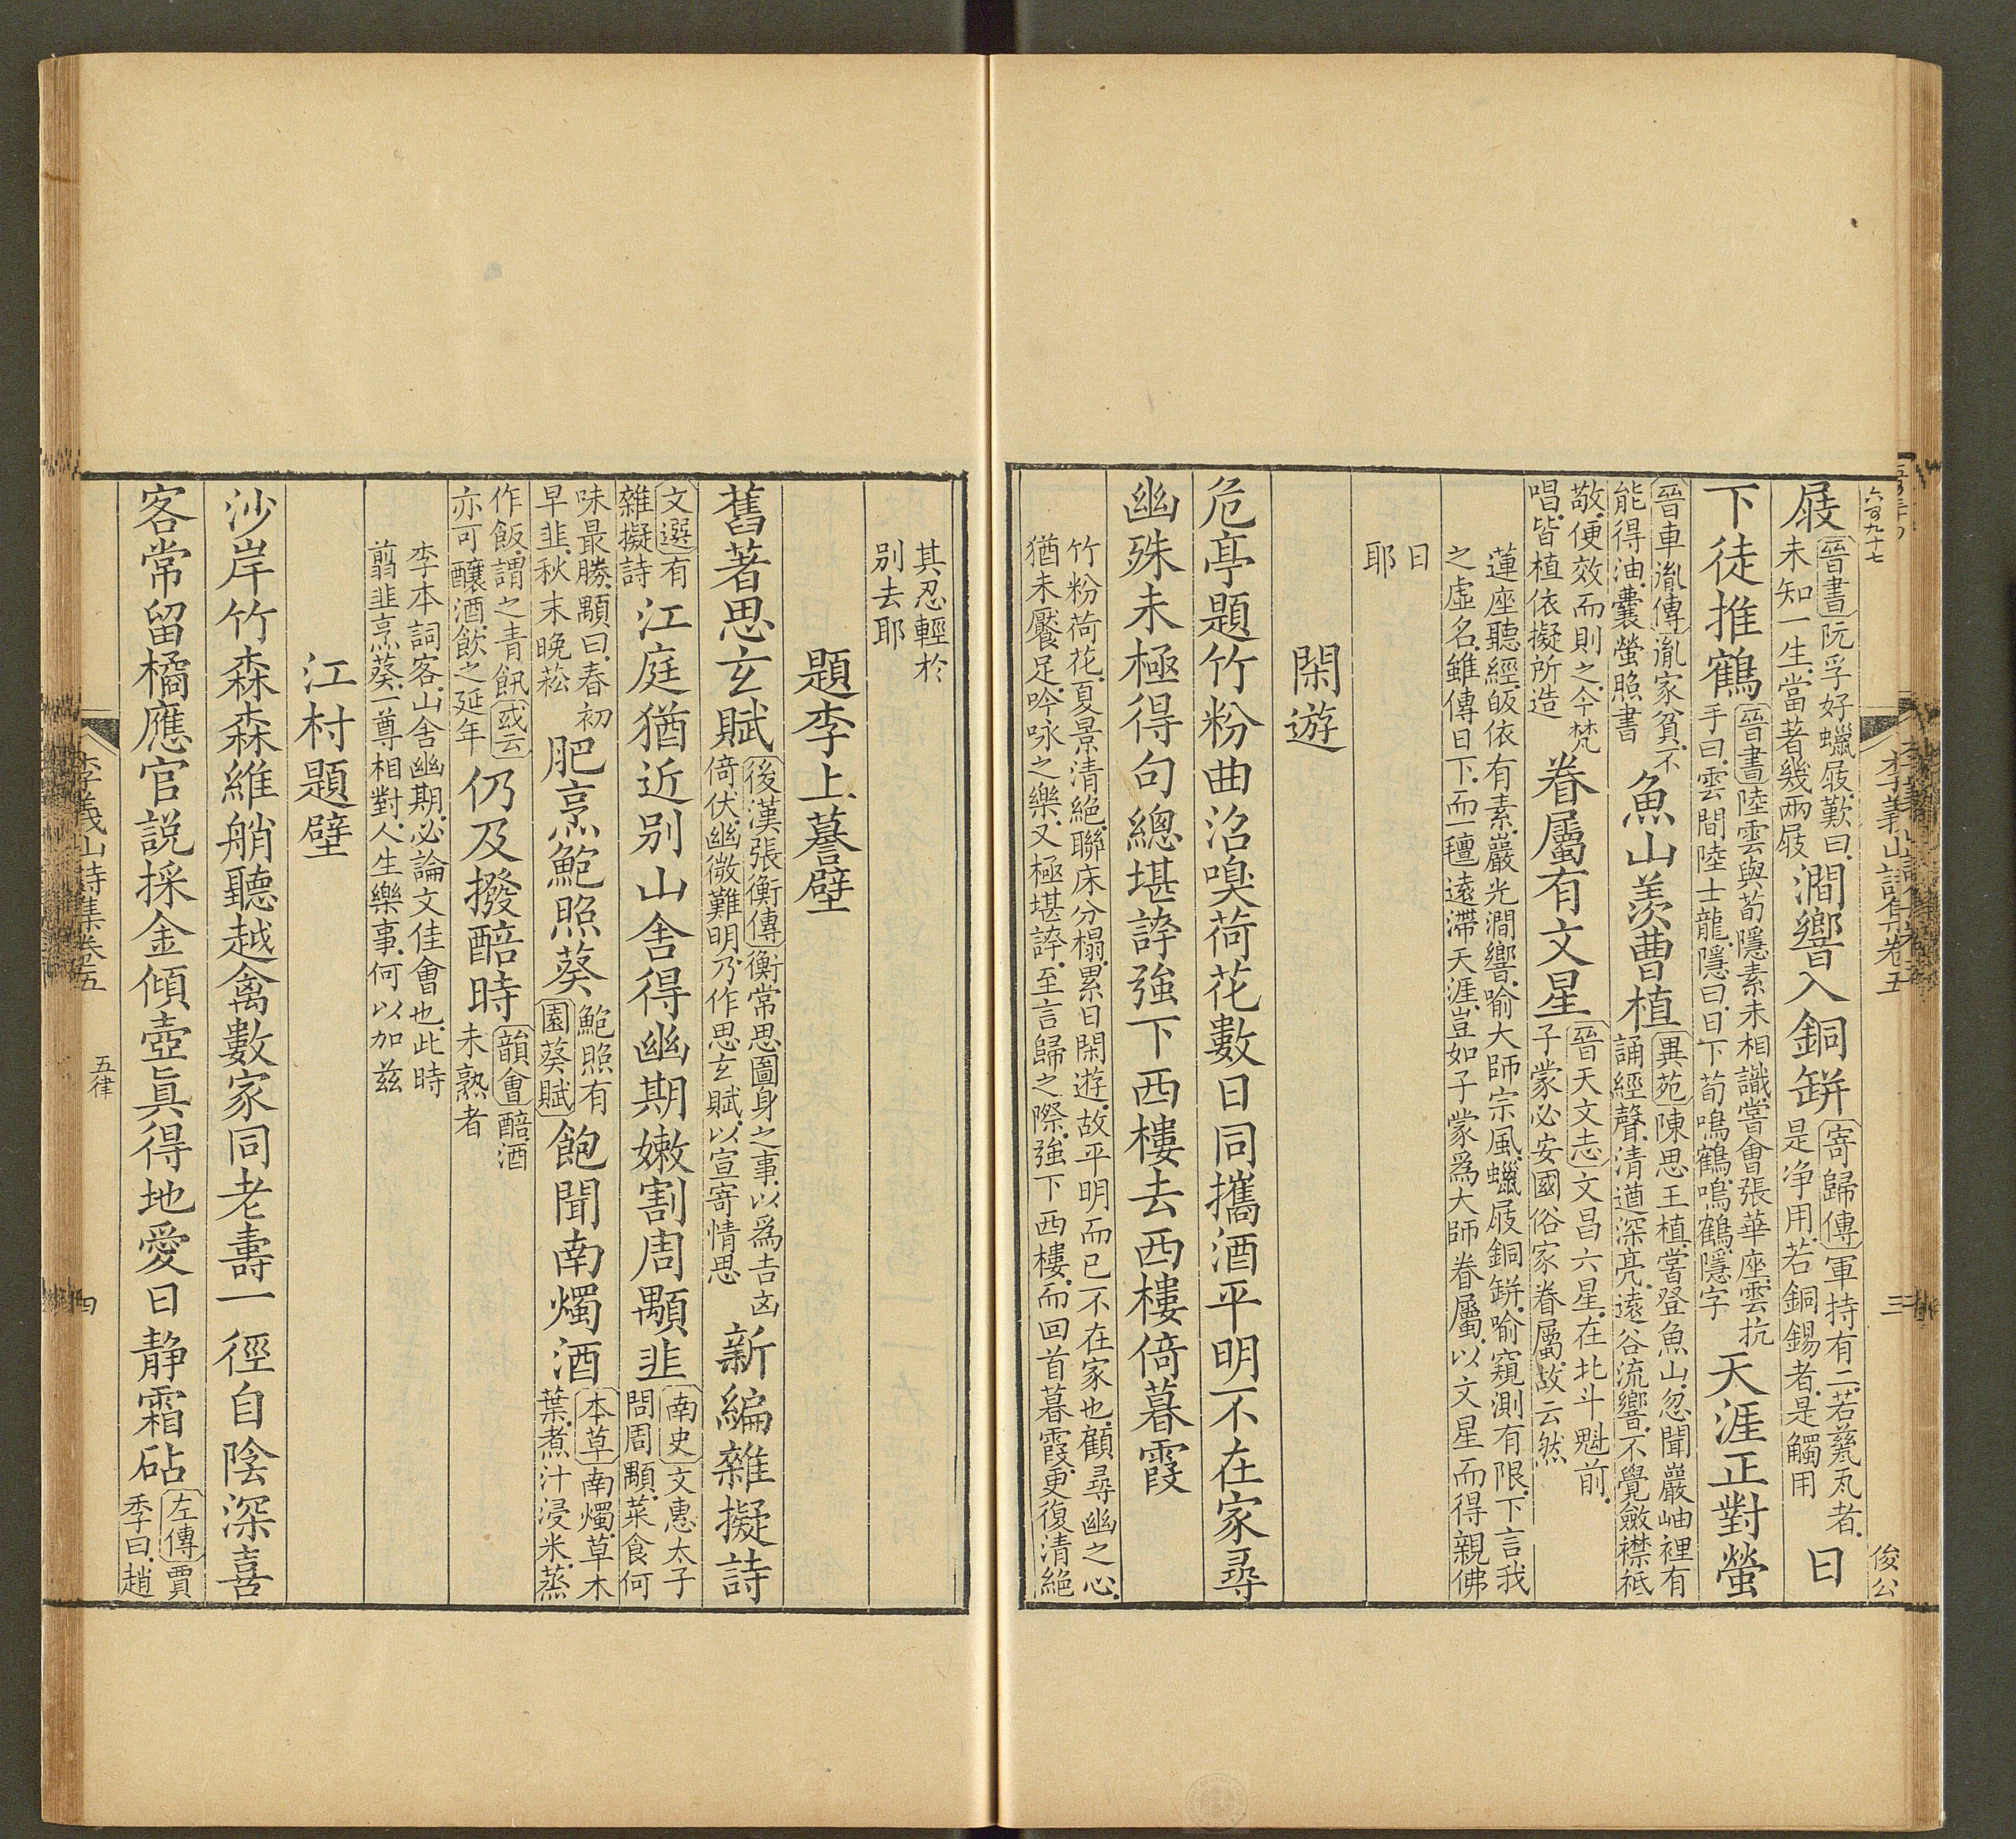 六百九十七
李義山詩集卷五
三
俊公
屐晉書阮孚好蠟屐歎曰
未知一生當著幾兩屐
澗響入銅缾寄歸傳軍持有二若甆瓦者
是净用若銅錫者是觸用
日
下徒推鶴晉書陸雲與荀隱素未相識嘗會張華座雲抗
手曰雲間陸士龍隱曰日下荀鳴鶴鳴鶴隱字
天涯正對螢
晉車胤傳胤家貧不
能得油囊螢照書
魚山羨曹植異苑陳思王植嘗登魚山忽聞巖岫裡有
誦經聲清遒深亮遠谷流響不覺斂襟祇
敬便效而則之今梵
唱皆植依擬所造
眷屬有文星晉天文志文昌六星在北斗魁前
子蒙必安國俗家眷屬故云然
蓮座聽經皈依有素巖光澗響喻大師宗風蠟屐銅缾喻窺測有限下言我
之虛名雖傳日下而一氊遠滯天涯豈如子蒙爲大師眷屬以文星而得親佛
日
耶
閑遊
危亭題竹粉曲沼嗅荷花數日同攜酒平明不在家尋
幽殊未極得句總堪誇強下西樓去西樓倚暮霞
竹粉荷花夏景清絕聯床分榻累日閑遊故平明而已不在家也顧尋幽之心
猶未饜足吟咏之樂又極堪誇至言歸之際強下西樓而回首暮霞更復清絕
其忍輕於
別去耶
題李上謩壁
舊著思玄賦後漢張衡傳衡常思圖身之事以爲吉凶
倚伏幽微難明乃作思玄賦以宣寄情思
新編雜擬詩
文選有
雜擬詩
江庭猶近別山舍得幽期嫩割周顒韭南史文惠太子
問周顒菜食何
味最勝顒曰春初
早韭秋末晚菘
肥烹鮑照葵鮑照有
園葵賦
飽聞南燭酒本草南燭草木
葉煮汁浸米蒸
作飯謂之青䬪或云
亦可釀酒飲之延年
仍及撥醅時韻會醅酒
未熟者
李本詞客山舍幽期必論文佳會也此時
翦韭烹葵一尊相對人生樂事何以加兹
江村題壁
沙岸竹森森維艄聽越禽數家同老壽一徑自陰深喜
客常留橘應官説採金傾壺眞得地愛日静霜砧左傳賈
季曰趙
李義山詩集卷五
五律
四